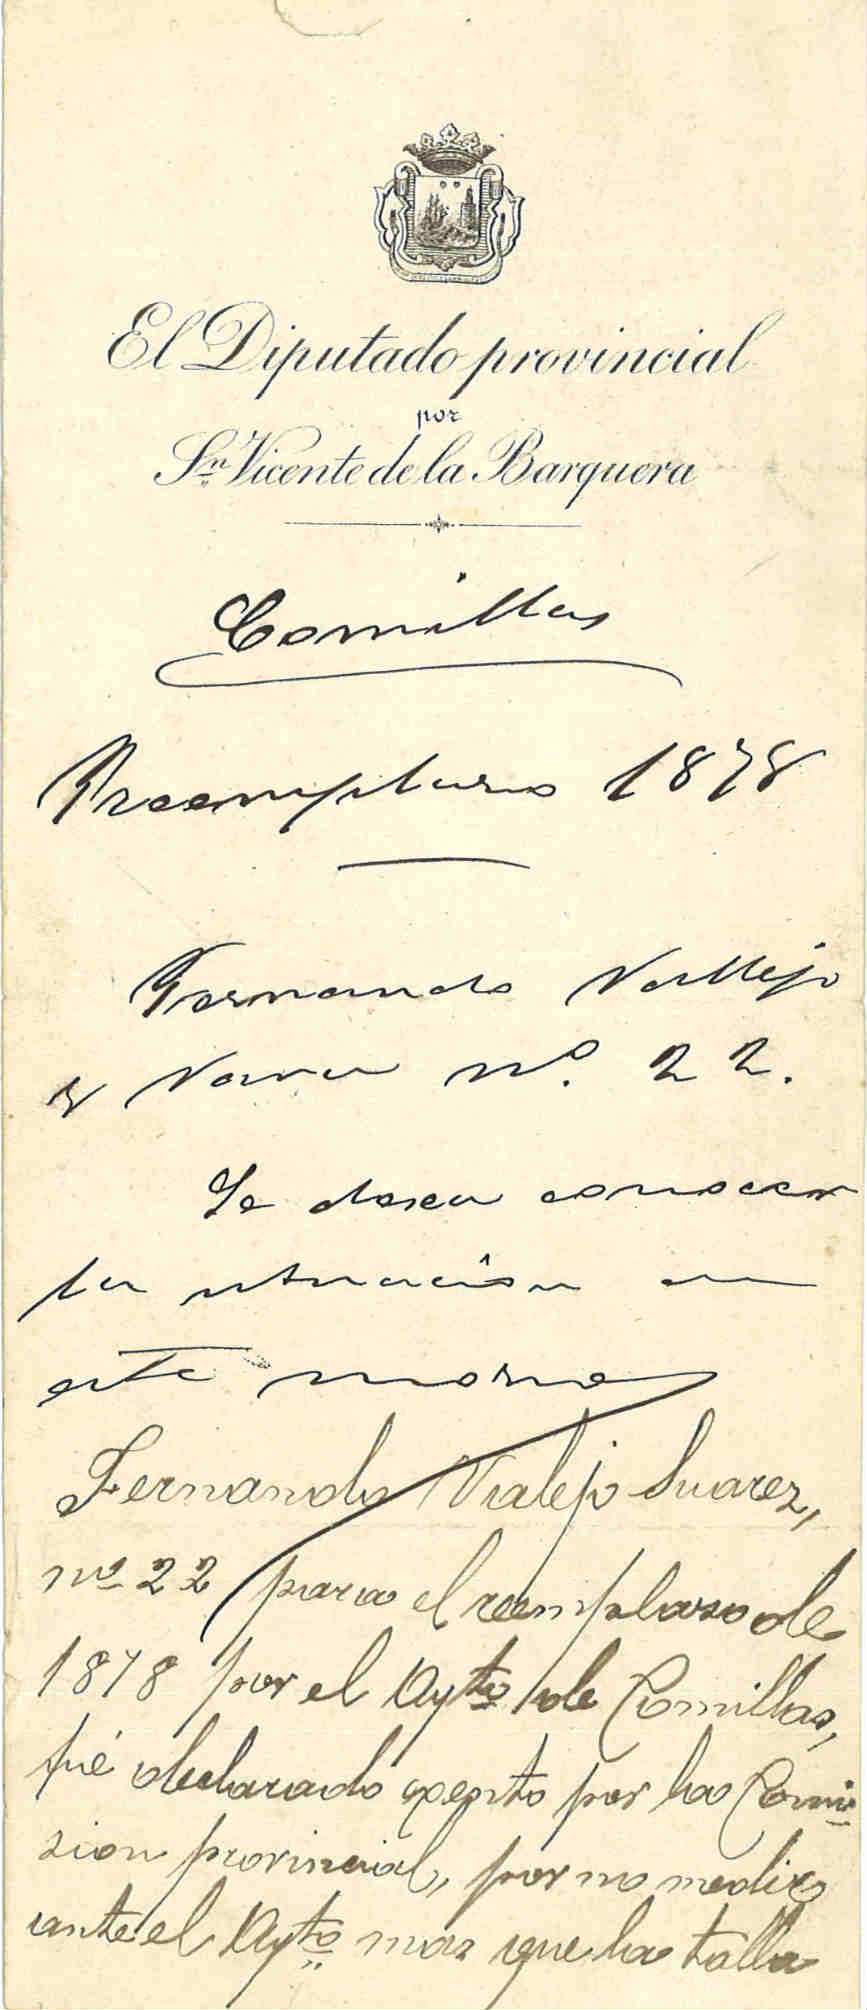 El Diputado provincial
por
Sn. Vicente de la Barquera
Comillas
Reemplazo 1878
Fernando Vallejo
y nº. 22.
Se desea conocer
la situacion en
este
Fernando Vialejo Suarez,
nº 22 para el reemplazo de
1878 por el Ayto de Comillas,
fué declarado exepto por la Comi-
sion provincial, por no medir
ante el Ayto mas que la talla